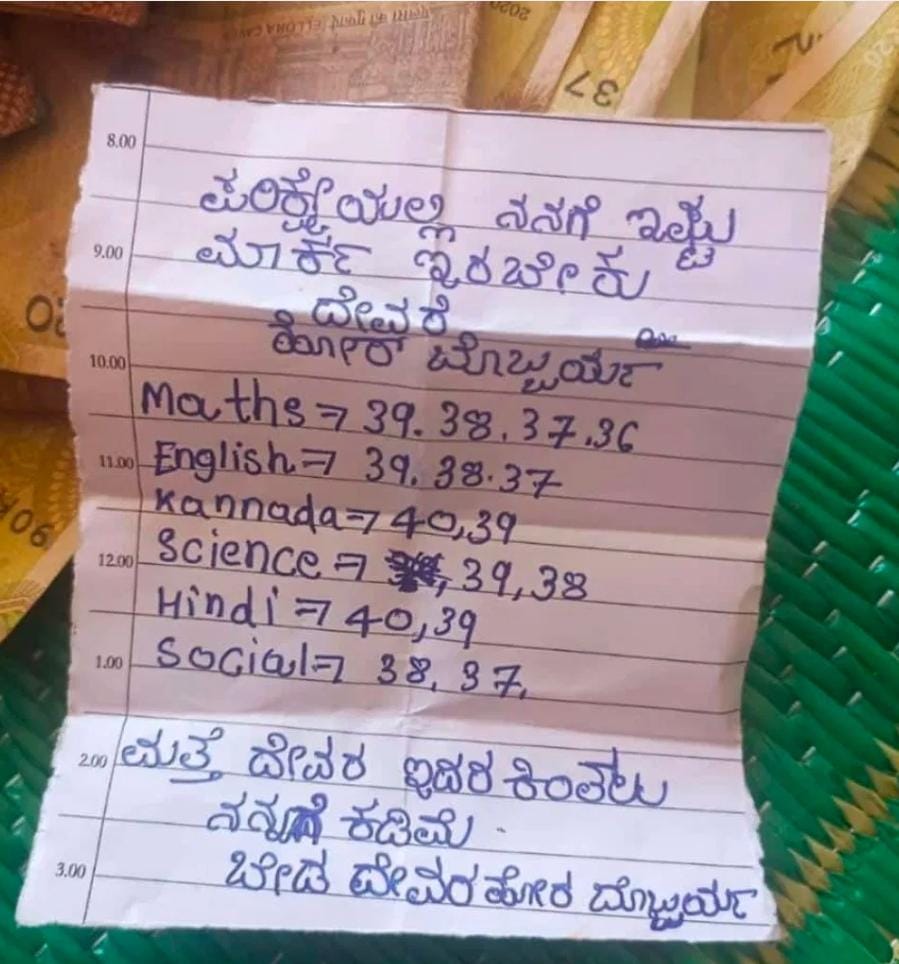 8.00
ಪರಿಕ್ಷೇಯಲ್ಲಿ ನನಗೆ ಇಷ್ಟು
9.00
ಮಾರ್ಕ್ ಇರಬೇಕು
ದೇವರೆ
10.00
ಹೋರ್ ಬೊಜ್ಜರ್ಯ
Maths ⇒ 39.38.37.36
11.00
English ⇒ 39.38.37
Kannada ⇒ 40,39
12.00
Science ⇒ 39,38
Hindi ⇒ 40,39
1.00
Social ⇒ 38, 37,
2.00
ಮತ್ತೆ ದೇವರ ಇದರ ಕಿಂತಲು
ನನ್ನಗೆ ಕಡಿಮೆ
3.00
ಬೇಡ ದೇವರ ಹೋರ ಬೊಜ್ಜರ್ಯ